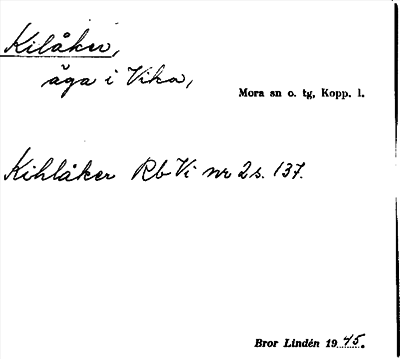 Kilåker,
äga i Vika,
Mora sn o. tg, Kopp. l.
Kihlåker Rb Vi nr 2 s. 137.
Bror Lindén 1945.